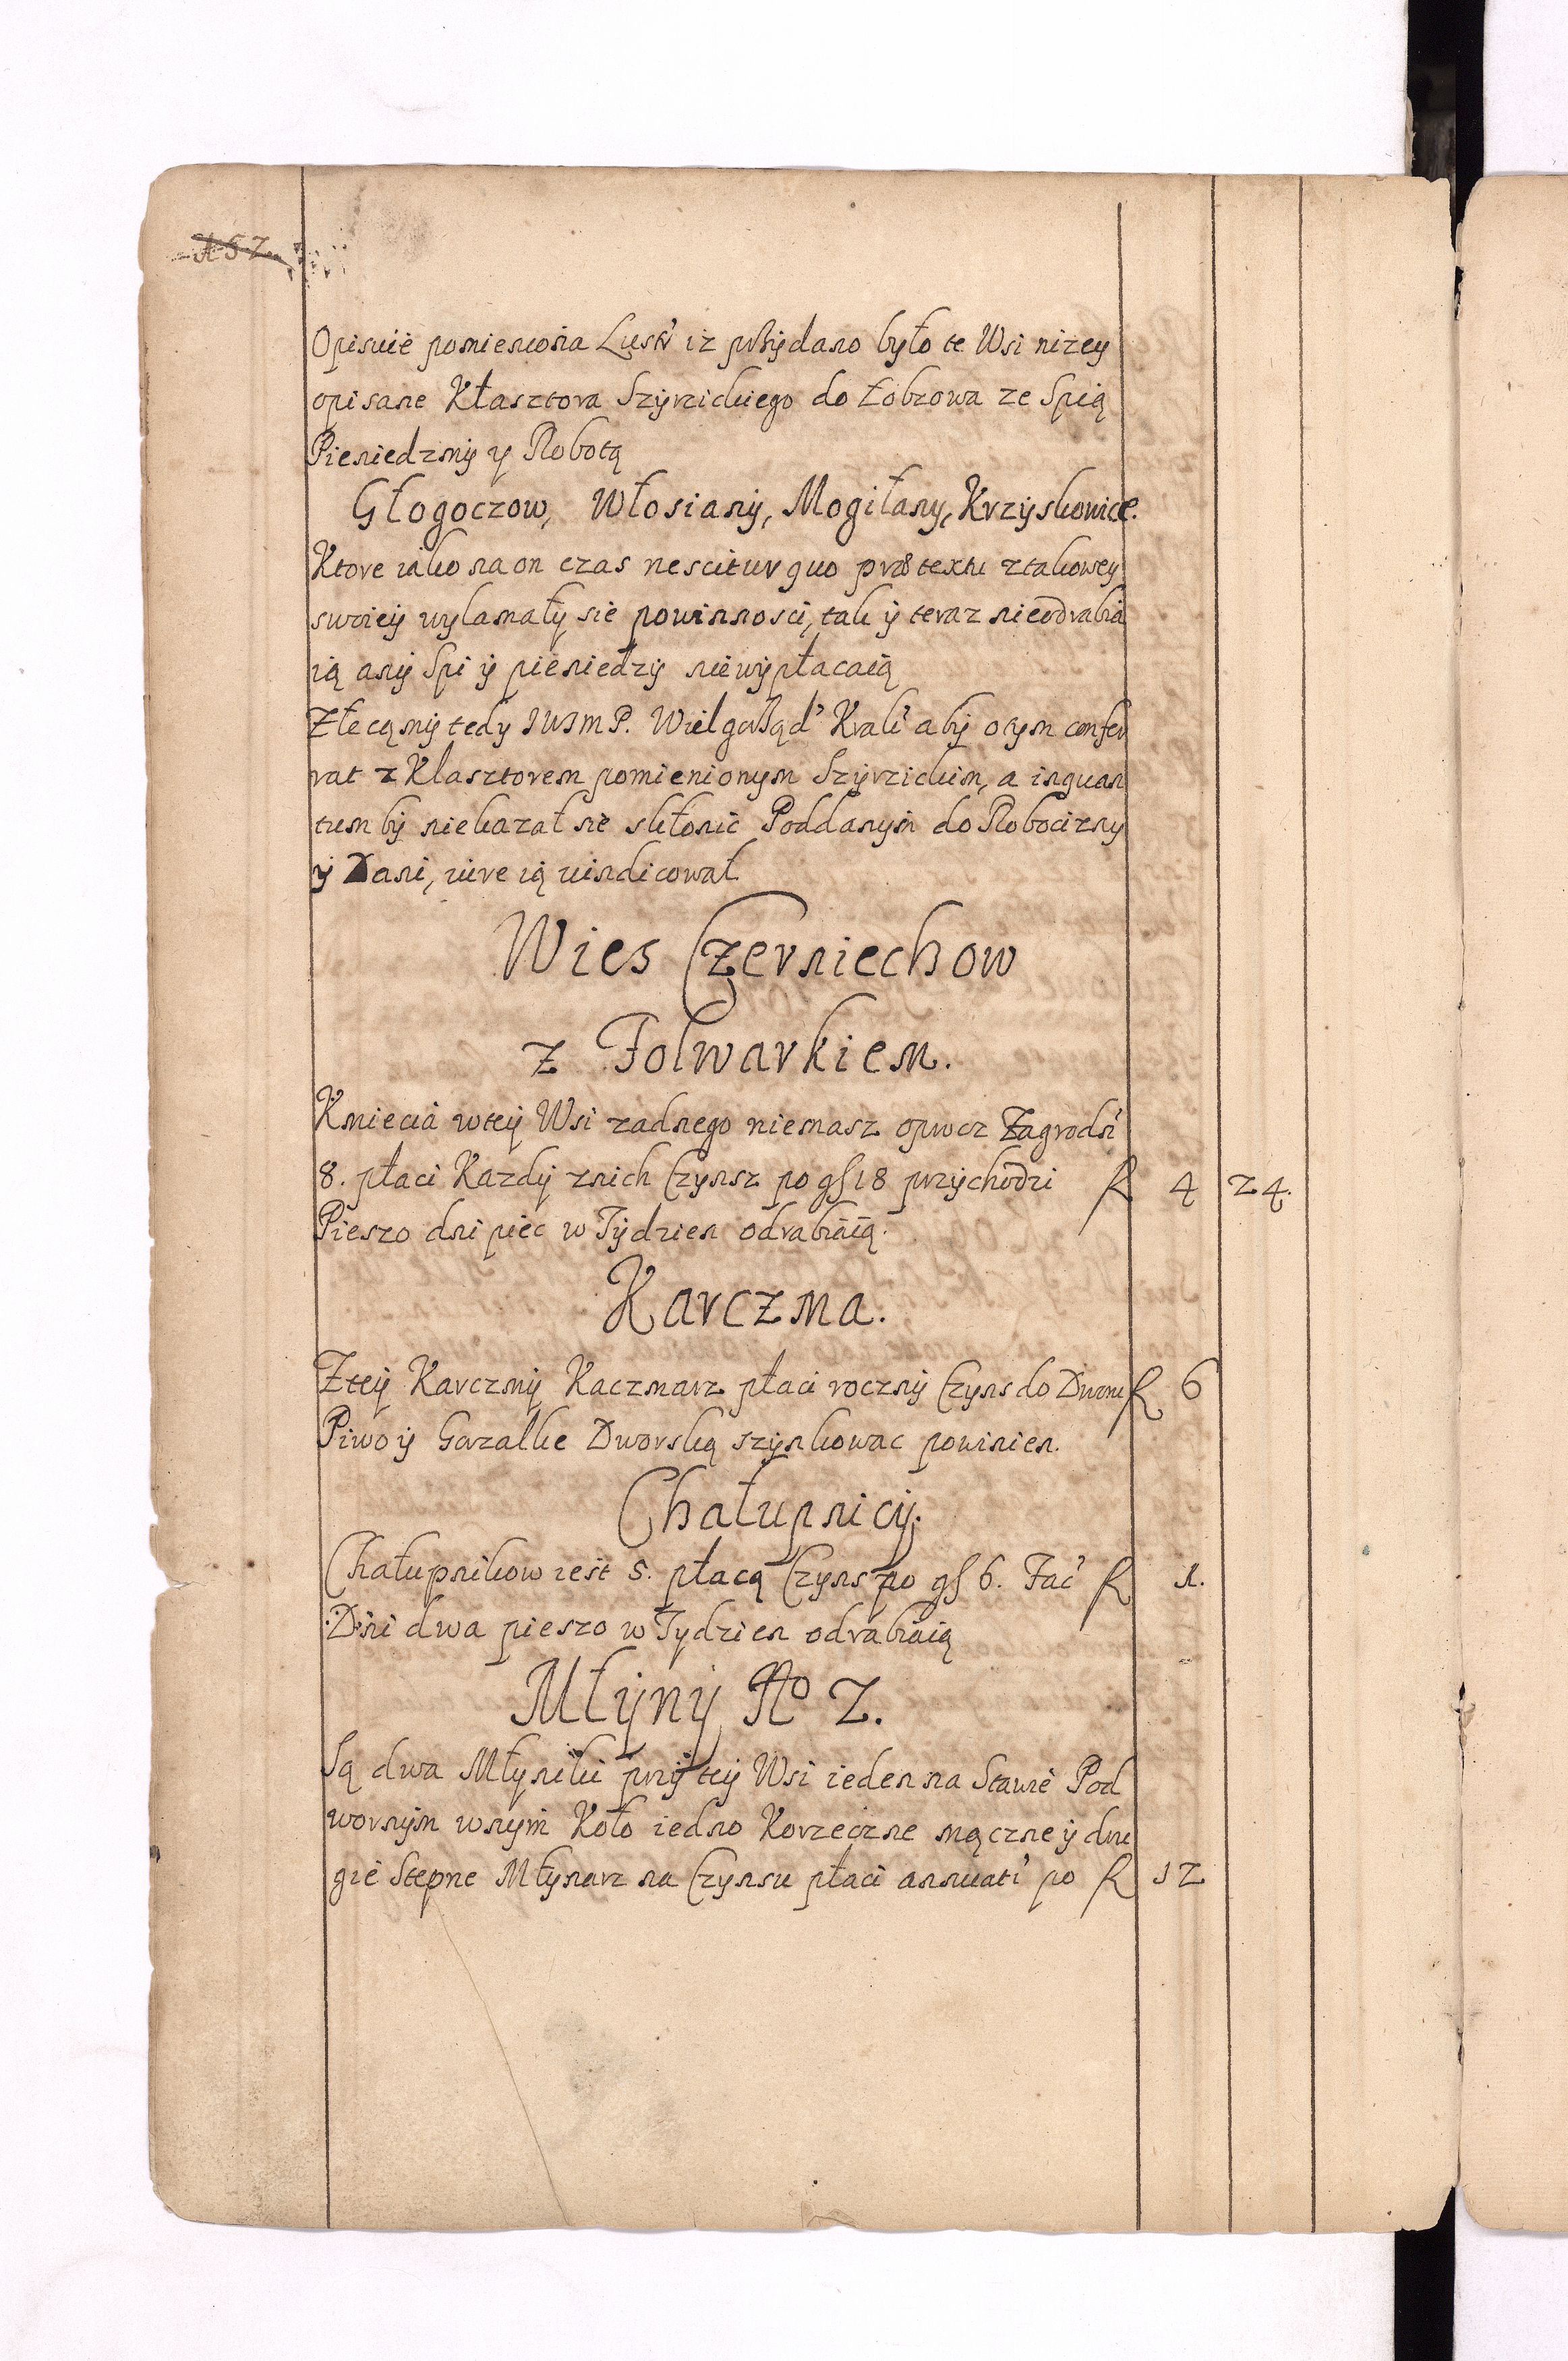 152
Opisuie pomieniona Lustr' iz przydano było te Wsi nizey
opisane Kłasztora Szyrzickiego do Łobzowa ze Spią
Pieniedzmy y Robotą
Głogoczow, Włosiany, Mogiłany, Krzyskowice.
Ktore iako na on czas nescitur quo prætextu z takowey
swoiey wylamały sie powinnosci, tak y teraz nieodrabia
ią any Spi y pieniedzy niewypłacaią
Zlecąmy tedy JWJmP. Wielgorząd' Krak' aby o tym confer
rat z Klasztorem pomienionym Szyrzickim, a inquan
tum by niekazał sie skłonic Poddanym do Robocizny
y Dani, iure ią vindicował
Wies Czerniechow
z Folwarkiem.
Kmiecia w tey Wsi zadnego niemasz oprocz Zagrodn'
8. płaci Kazdy z nich Czynsz po gſ 18 przychodzi f 4 24.
Pieszo dni piec w Tydzien odrabiaią.
Karczma.
Z tey Karczmy Kaczmarz płaci roczny Czyns do Dworu f 6
Piwo y Gorzalke Dworską szynkowac powinien.
Chałupnicy.
Chałupnikow iest 5. płacą Czyns po gſ 6. Fac' f 1.
Dni dwa pieszo w Tydzien odrabiaią
Młyny No 2.
Są dwa Młyniki przy tey Wsi ieden na Stawie Pod
wornym w nym Koło iedno Korzeczne mączne y dru
gie Stepne Młynarz na Czynsu płaci annuati' po f 12